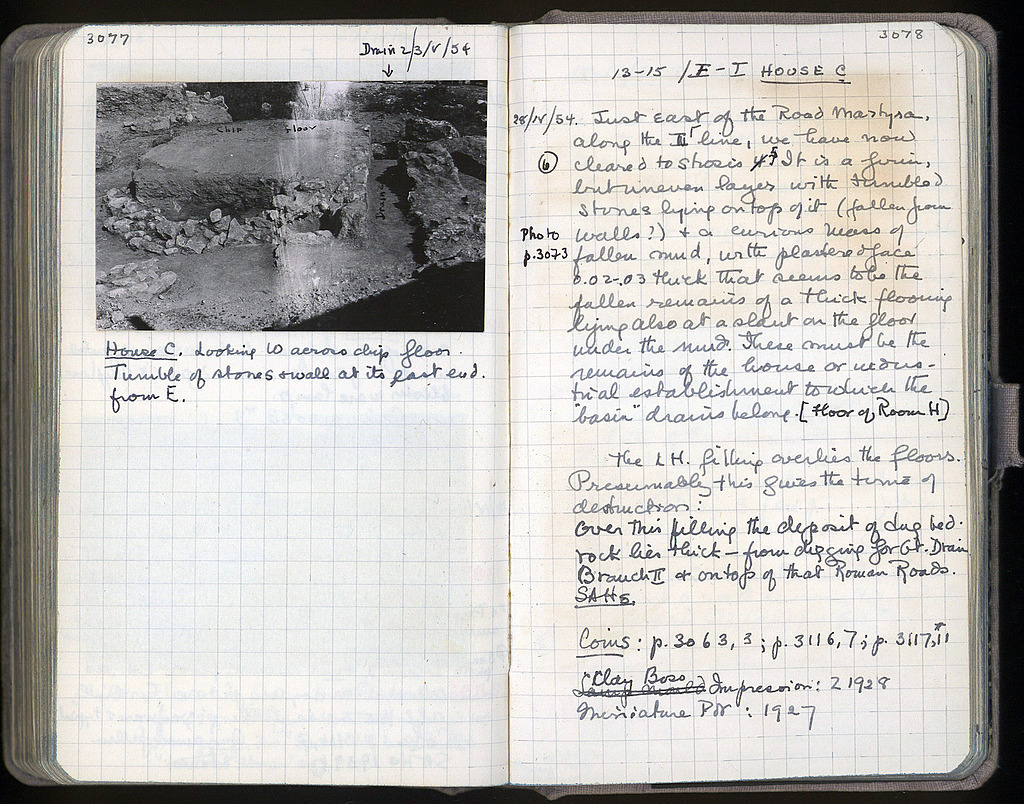 3077
Drain 2/3/V/54
↓
Chip Floor
Drain
House C. Looking W across chip floor.
Tumble of stones & wall at its east end.
from E.
3078
13-15 / E-I HOUSE C
28/IV/54. Just East of the Road Martyra,
along the III line, we have now
6 cleared to strosis 5 It is a firm,
but uneven layer with tumbled
stones lying on top of it (fallen from
Photo walls?) & a curious mass of
p.3073 fallen mud, with plastered face
0.02-.03 thick that seems to be the
fallen remains of a thick flooring
lying also at a slant on the floor
under the mud. These must be the
remains of the house or indus-
trial establishment to which the
"basin" drains belong. [Floor of Room H]
The LH. filling overlies the floors.
Presumably this gives the time of
destruction:
Over this filling the deposit of dug bed-
rock lies thick – from digging for Gt. Drain
Branch II & on top of that Roman Roads.
SAHs.
Coins: p. 3063, 3; p. 3116, 7; p. 3117, *11
Clay Boss
Lamp Mould Impression: 21928
Miniature Pot : 1927